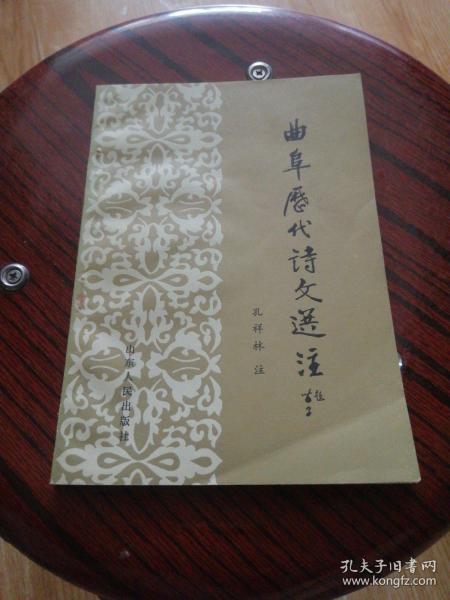 曲阜歷代诗文选注
孔祥林 注
山东人民出版社
孔夫子旧书网
www.kongfz.com